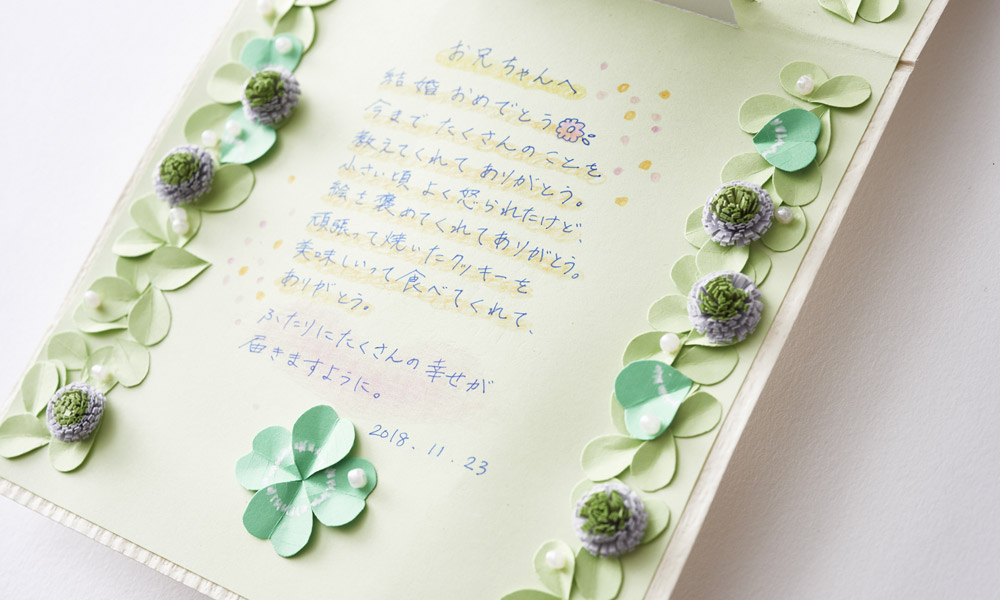 お兄ちゃんへ
結婚おめでとう
今までたくさんのことを
教えてくれてありがとう。
小さい頃よく怒られたけど、
絵を褒めてくれてありがとう。
頑張って焼いたクッキーを
美味しいって食べてくれて、
ありがとう。
ふたりにたくさんの幸せが
届きますように。
2018.11.23